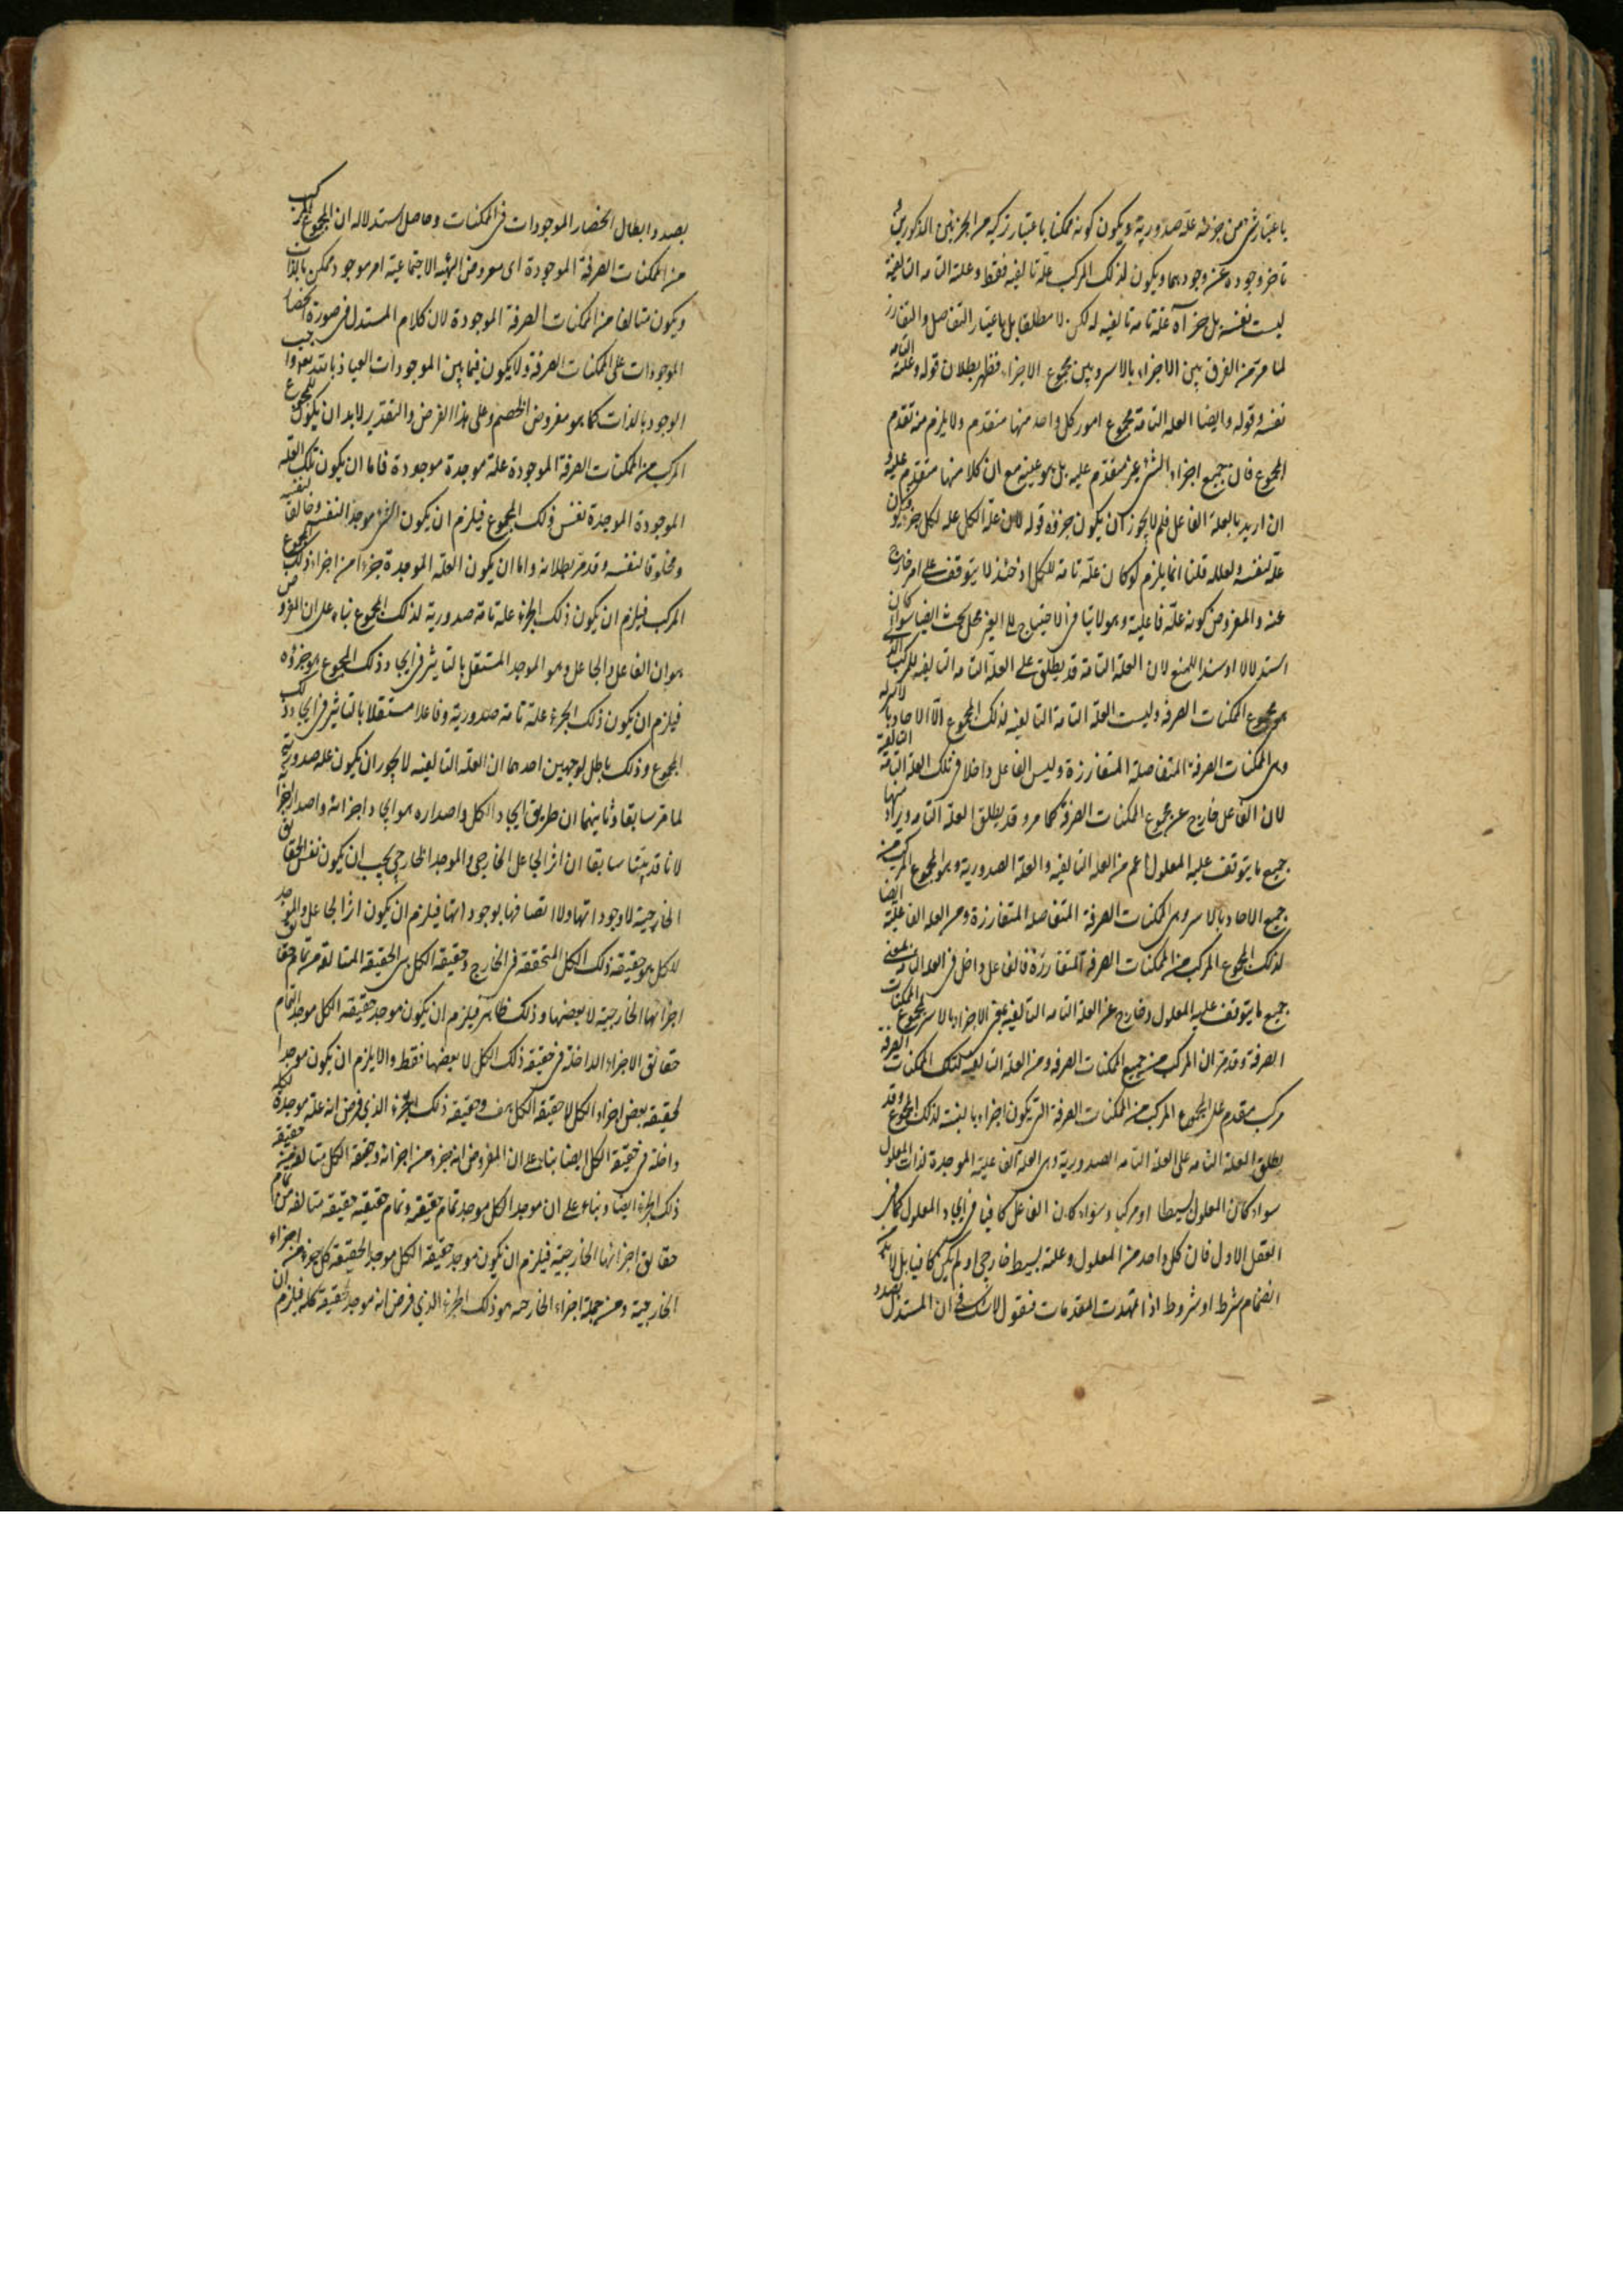 باعتبار شئ من جزئه علة صدورية ويكون كونه ممكنا باعتبار تركبه من الجزئين المذكورين و
تاخر وجوده عن وجودهما ويكون لذلك المركب علة تاليفيه فقط وعلته التامه التاليفية
ليست نفسه بل جزآه علة تامه تاليفيه له لكن لا مطلقا بل باعتبار التفاصل والتفارز
لما مر من الفرق بين الاجزاء بالاسر وبين مجموع الاجزاء فظهر بطلان قوله وعلته التامه
نفسه وقوله وايضا العلة التامة مجموع امور كل واحد منها متقدم ولا يلزم منه تقدم
المجموع فان جميع اجزاء الشئ غير متقدم عليه بل هو عينه مع ان كلا منها متقدم عليه و
ان اريد بالعلة الفاعل فلم لا يجوز ان يكون جزؤه قوله لان علة الكل علة لكل جزء فيكون
علة لنفسه ولعلله قلنا انما يلزم لو كان علة تامة للكل اذ حينئذ لا يتوقف على امر خارج
عنه والمفروض كونه علة فاعلية وهو لا ينافي الاحتياج الى الغير محل بحث ايضا سواء كان
استدلالا او سندا للمنع لان العلة التامة قد يطلق على العلة التامه التاليفيه للمركب الذي
هو مجموع الممكنات الصرفه وليست العلة التامة التاليفيه لذلك المجموع الا الاحاد بالاسر
وهي الممكنات الصرفة المتفاصلة المتفارزة وليس الفاعل داخلا في تلك العلة التامه التاليفية
لان الفاعل خارج عن مجموع الممكنات الصرفة كما مر وقد يطلق العلة التامه ويراد منها
جميع ما يتوقف عليه المعلول اعم من العلة التاليفيه والعلة الصدورية وهو المجموع المركب من
جميع الاحاد بالاسر وهي الممكنات الصرفة المتفاصلة المتفارزة ومن العلة الفاعلية ايضا
لذلك المجموع المركب من الممكنات الصرفة المتفارزة فالفاعل داخل في العلة التامه بمعنى
جميع ما يتوقف عليه المعلول وخارج عن العلة التامه التاليفيه بمعنى الاجزاء بالاسر لمجموع الممكنات
الصرفة وقد مر ان المركب من جميع الممكنات الصرفه ومن العلة التاليفيه لتلك الممكنات الصرفة
مركب متقدم على المجموع المركب من الممكنات الصرفة التي يكون اجزاء بالنسبة لذلك المجموع وقد
يطلق العلة التامه على العلة التامه الصدورية وهي العلة الفاعلية الموجدة لذات المعلول
سواء كان المعلول بسيطا او مركبا وسواء كان الفاعل كافيا في ايجاد المعلول كما في
العقل الاول فان كل واحد من المعلول وعلته بسيط خارجي او لم يكن كافيا بل لابد من
انضمام شرط او شروط اذا تمهدت المقدمات فنقول لا شك في ان المستدل بصدد
بصدد ابطال انحصار الموجودات في الممكنات وحاصل استدلاله ان المجموع المركب
من الممكنات الصرفة الموجودة اى معروض الهيئة الاجتماعية امر موجود ممكن بالذات
ويكون متالفا من الممكنات الصرفة الموجودة لان كلام المستدل في صورة انحصار
الموجودات على الممكنات الصرفة ولا يكون فيما بين الموجودات العياذ بالله تعالى واجب
الوجود بالذات كما هو مفروض الخصم وعلى هذا الفرض والتقدير لابد ان يكون للمجموع
المركب من الممكنات الصرفة الموجودة علة موجدة موجودة فاما ان يكون تلك العلة
الموجودة الموجدة نفس ذلك المجموع فيلزم ان يكون الشئ موجدا لنفسه وخالقا لنفسه
ومخلوقا لنفسه وقد مر بطلانه واما ان يكون العلة الموجدة جزءا من اجزاء ذلك المجموع
المركب فيلزم ان يكون ذلك الجزء علة تامة صدورية لذلك المجموع بناء على ان المفروض
هو ان الفاعل والجاعل وهو الموجد المستقل بالتاثير في ايجاد ذلك المجموع هو جزؤه
فيلزم ان يكون ذلك الجزء علة تامة صدورية وفاعلا مستقلا بالتاثير في ايجاد ذلك
المجموع وذلك باطل لوجهين احدهما ان العلة التاليفيه لا يجوز ان يكون علة صدورية
لما مر سابقا وثانيهما ان طريق ايجاد الكل واصداره هو ايجاد اجزائه واصدار اجزائه
لانا قد بينا سابقا ان اثر الجاعل الخارجي والموجد الخارجي يجب ان يكون نفس الحقائق
الخارجية لا وجوداتها ولا اتصافها بوجوداتها فيلزم ان يكون اثر الجاعل والموجد
للكل هو حقيقة ذلك الكل المتحققة في الخارج وحقيقة الكل هي الحقيقة المتالفة من تمام حقائق
اجزائها الخارجية لا بعضها وذلك ظاهر فيلزم ان يكون موجد حقيقة الكل موجد التمام
حقائق الاجزاء الداخلة في حقيقة ذلك الكل لا بعضها فقط والا يلزم ان يكون موجدا
لحقيقة بعض اجزاء الكل لا حقيقة الكل هف وحقيقة ذلك الجزء الذي فرض انه علة موجدة للكل
داخلة في حقيقة الكل ايضا بناء على ان المفروض انه جزء من اجزائه وحقيقة الكل متالفة من حقيقة
ذلك الجزء ايضا وبناء على ان موجد الكل موجد تمام حقيقته وتمام حقيقته حقيقة متالفة من تمام
حقائق اجزائها الخارجية فيلزم ان يكون موجد حقيقة الكل موجد الحقيقة كل جزء من اجزائه
الخارجية ومن جملة اجزاء الخارجة هو ذلك الجزء الذي فرض انه موجد لحقيقة كله فيلزم ان